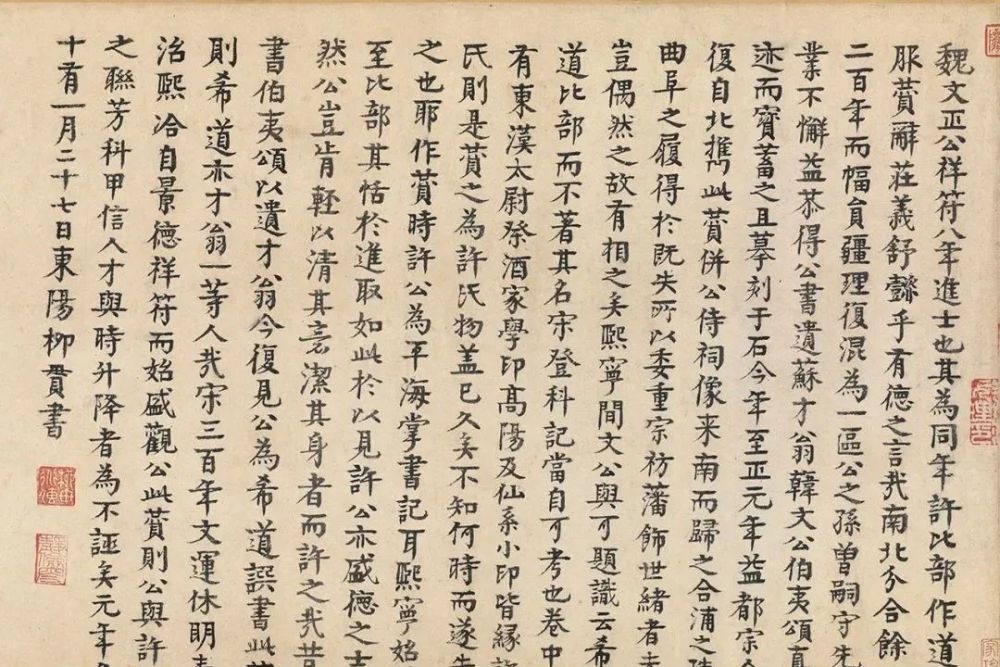 魏文正公祥符八年進士也其為同年許比部作道
服賛辭莊義舒懿乎有德之言㢤南北分合餘
二百年而幅貟疆理復混為一區公之孫曾嗣守先
業不懈益恭得公書遺蘇才翁韓文公伯夷頌真
迹而寳蓄之且摹刻于石今年至正元年益都宗
復自北攜此賛併公侍祠像来南而歸之合浦之
曲阜之履得於既失所以委重宗祊藩飾世緒者
豈偶然之故有相之矣熙寧間文公與可題識云希
道比部而不著其名宋登科記當自可考也卷中
有東漢太尉祭酒家學印高陽及仙系小印皆縁
氏則是賛之為許氏物盖已久矣不知何時而遂
之也耶作賛時許公為平海掌書記耳熙寧始
至比部其恬於進取如此於以見許公亦盛德之士
然公豈肯輕以清其意潔其身者而許之㢤昔
書伯夷頌以遺才翁今復見公為希道譔書此
則希道亦才翁一等人㢤宋三百年文運休明
治熙洽自景德祥符而始盛觀公此賛則公與許
之聯芳科甲信人才與時升降者為不誣矣元年
十有一月二十七日東陽柳貫書